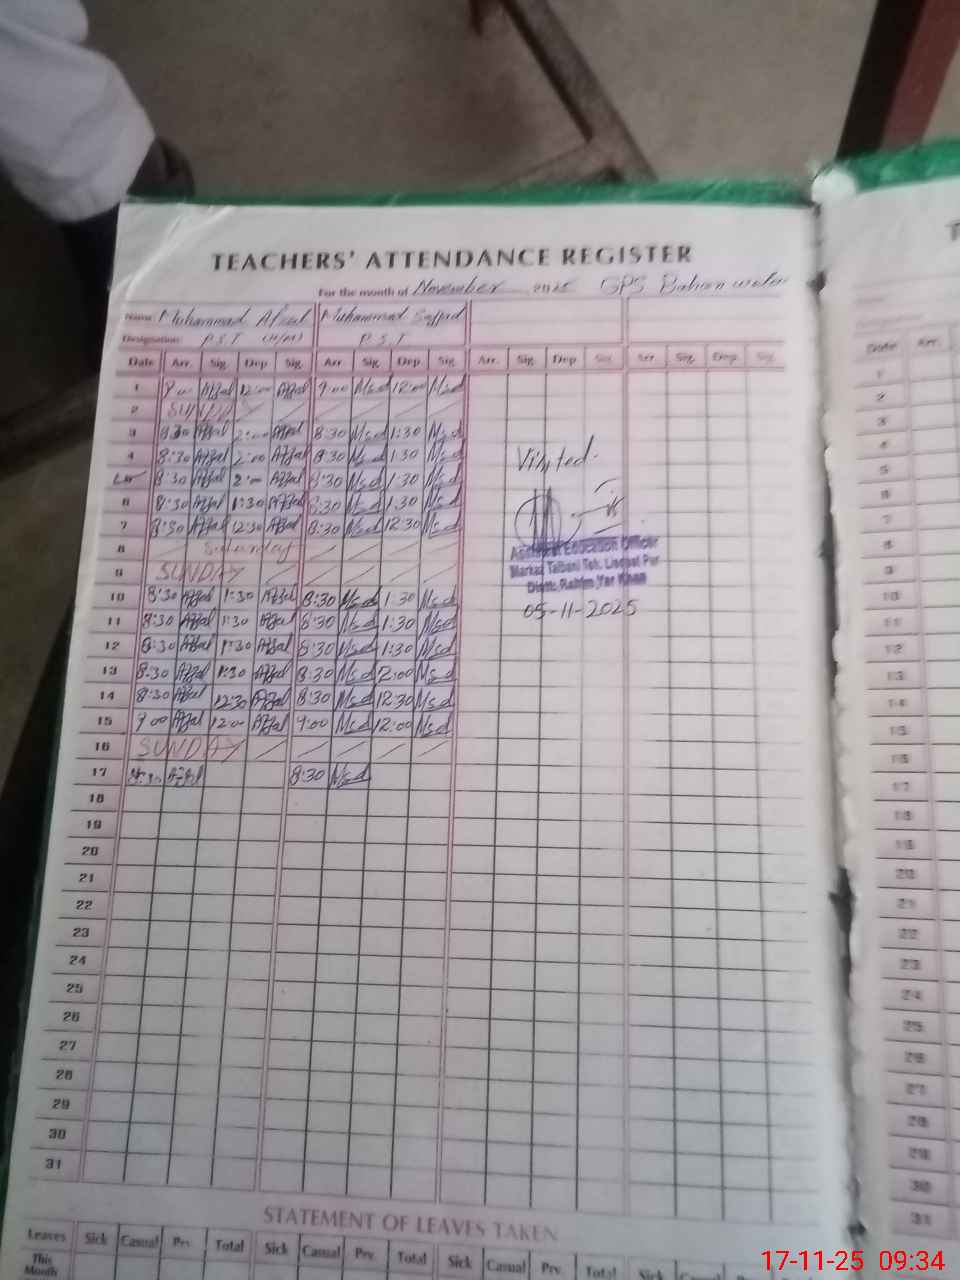 TEACHERS' ATTENDANCE REGISTER
For the month of November 2025 GPS
Name Muhammad Afzal Muhammad Sajjad
Designation P.S.T (H/M) P.S.T
Date Arr. Sig. Dep Sig. Arr. Sig. Dep. Sig. Arr. Sig. Dep Sig. Arr. Sig. Dep. Sig.
1 9:00 Afzal 12:00 Afzal 9:00 Msd 12:00 Msd
2 SUNDAY
3 8:30 Afzal 2:00 Afzal 8:30 Msd 1:30 Msd
4 8:30 Afzal 2:00 Afzal 8:30 Msd 1:30 Msd
8:30 Afzal 2:00 Afzal 8:30 Msd 1:30 Msd
6 8:30 Afzal 1:30 Afzal 8:30 Msd 1:30 Msd
7 8:30 Afzal 12:30 Afzal 8:30 Msd 12:30 Msd
8 Saturday
9 SUNDAY
10 8:30 Afzal 1:30 Afzal 8:30 Msd 1:30 Msd
11 8:30 Afzal 1:30 Afzal 8:30 Msd 1:30 Msd
12 8:30 Afzal 1:30 Afzal 8:30 Msd 1:30 Msd
13 8:30 Afzal 1:30 Afzal 8:30 Msd 2:00 Msd
14 8:30 Afzal 12:30 Afzal 8:30 Msd 12:30 Msd
15 9:00 Afzal 12:00 Afzal 9:00 Msd 12:00 Msd
16 SUNDAY
17 8:30 Afzal 8:30 Msd
18
19
20
21
22
23
24
25
26
27
28
29
30
31
Visited.
Assistant Education Officer
Markaz Talbani Teh. Liaqat Pur
Distt: Rahim Yar Khan
05-11-2025
STATEMENT OF LEAVES TAKEN
Leaves Sick Casual Prv. Total Sick Casual Prv. Total Sick Casual Prv. Total Sick Casual
This Month
Date Arr.
1
2
3
4
5
6
7
8
9
10
11
12
13
14
15
16
17
18
19
20
21
22
23
24
25
26
27
28
29
30
31
17-11-25 09:34